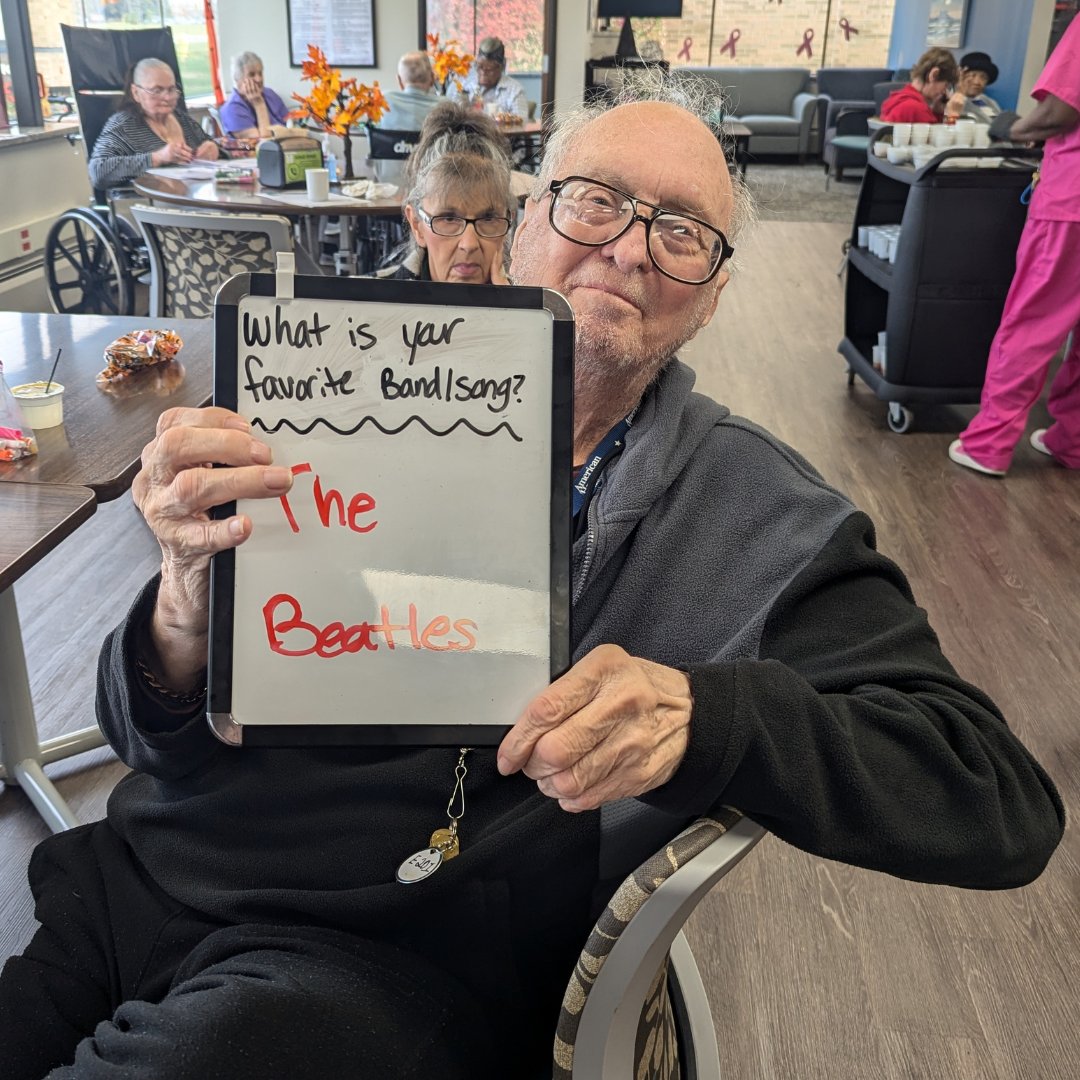 What is your
favorite Band/song?
The
Beatles
American
E201